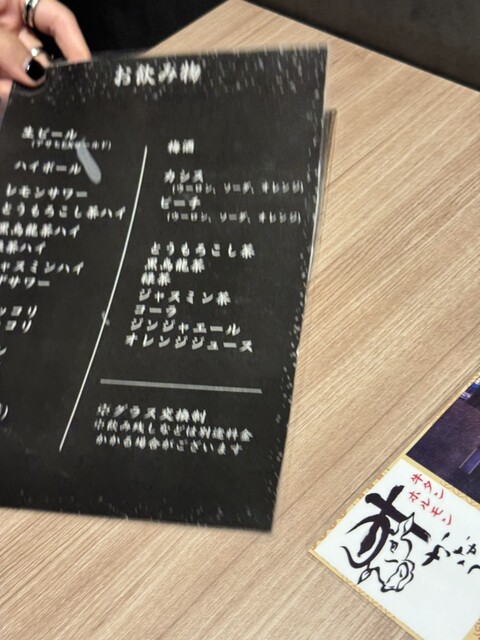 お飲み物
生ビール
ハイボール
レモンサワー
とうもろこし茶ハイ
黒烏龍茶ハイ
茶ハイ
ャスミンハイ
サワー
ッコリ
コリ
梅酒
カシス
(ウーロン、ソーダ、オレンジ)
ピーチ
(ウーロン、ソーダ、オレンジ)
とうもろこし茶
黒烏龍茶
緑茶
ジャスミン茶
コーラ
ジンジャエール
オレンジジュース
※グラス交換制
※飲み残しなどは別途料金
かかる場合がございます
牛タン
ホルモン